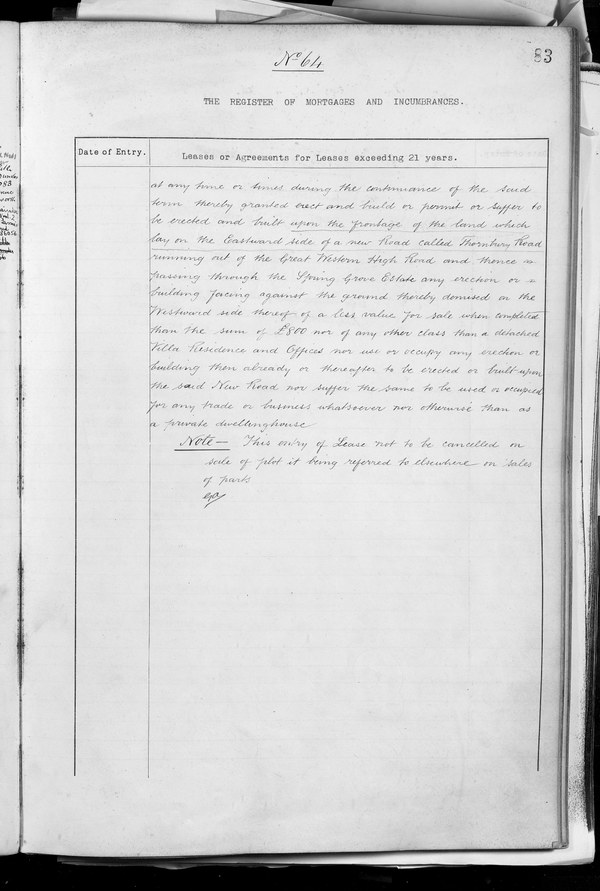 83
No 64
THE REGISTER OF MORTGAGES AND INCUMBRANCES.
Date of Entry.
Leases or Agreements for Leases exceeding 21 years.
at any time or times during the continuance of the said
term thereby granted erect and build or permit or suffer to
be erected and built upon the frontage of the land which
lay on the Eastward side of a new Road called Thornbury Road
running out of the Great Western High Road and thence
passing through the Spring Grove Estate any erection or
building facing against the ground thereby demised on the
Westward side thereof of a less value for sale when completed
than the sum of £800 nor of any other class than a detached
Villa Residence and Offices nor use or occupy any erection or
building then already or thereafter to be erected or built upon
the said New Road nor suffer the same to be used or occupied
for any trade or business whatsoever nor otherwise than as
a private dwellinghouse
Note — This entry of Lease not to be cancelled on
sale of plot it being referred to elsewhere on sales
of parts